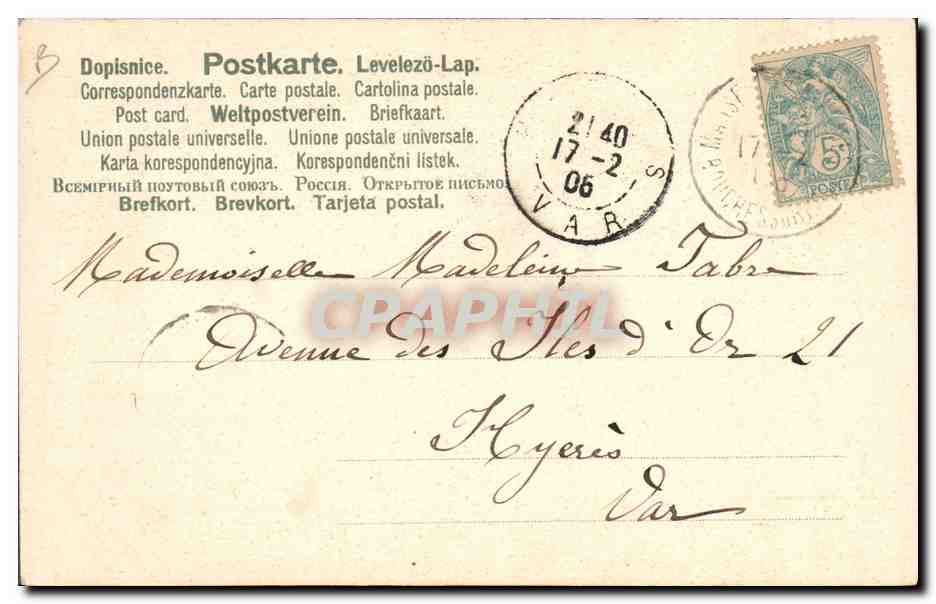 B
Dopisnice. Postkarte. Levelezö-Lap.
Correspondenzkarte. Carte postale. Cartolina postale.
Post card. Weltpostverein. Briefkaart.
Union postale universelle. Unione postale universale.
Karta korespondencyjna. Korespondenčni listek.
Всемірный поутовый союзъ. Россія. Открытое письмо.
Brefkort. Brevkort. Tarjeta postal.
21 40
17 - 2
06
VAR
S
17
5c
POSTES
Mademoiselle Madeleine Fabre
Avenue des Iles d'Or 21
Hyerès
Var
CPAPHIL